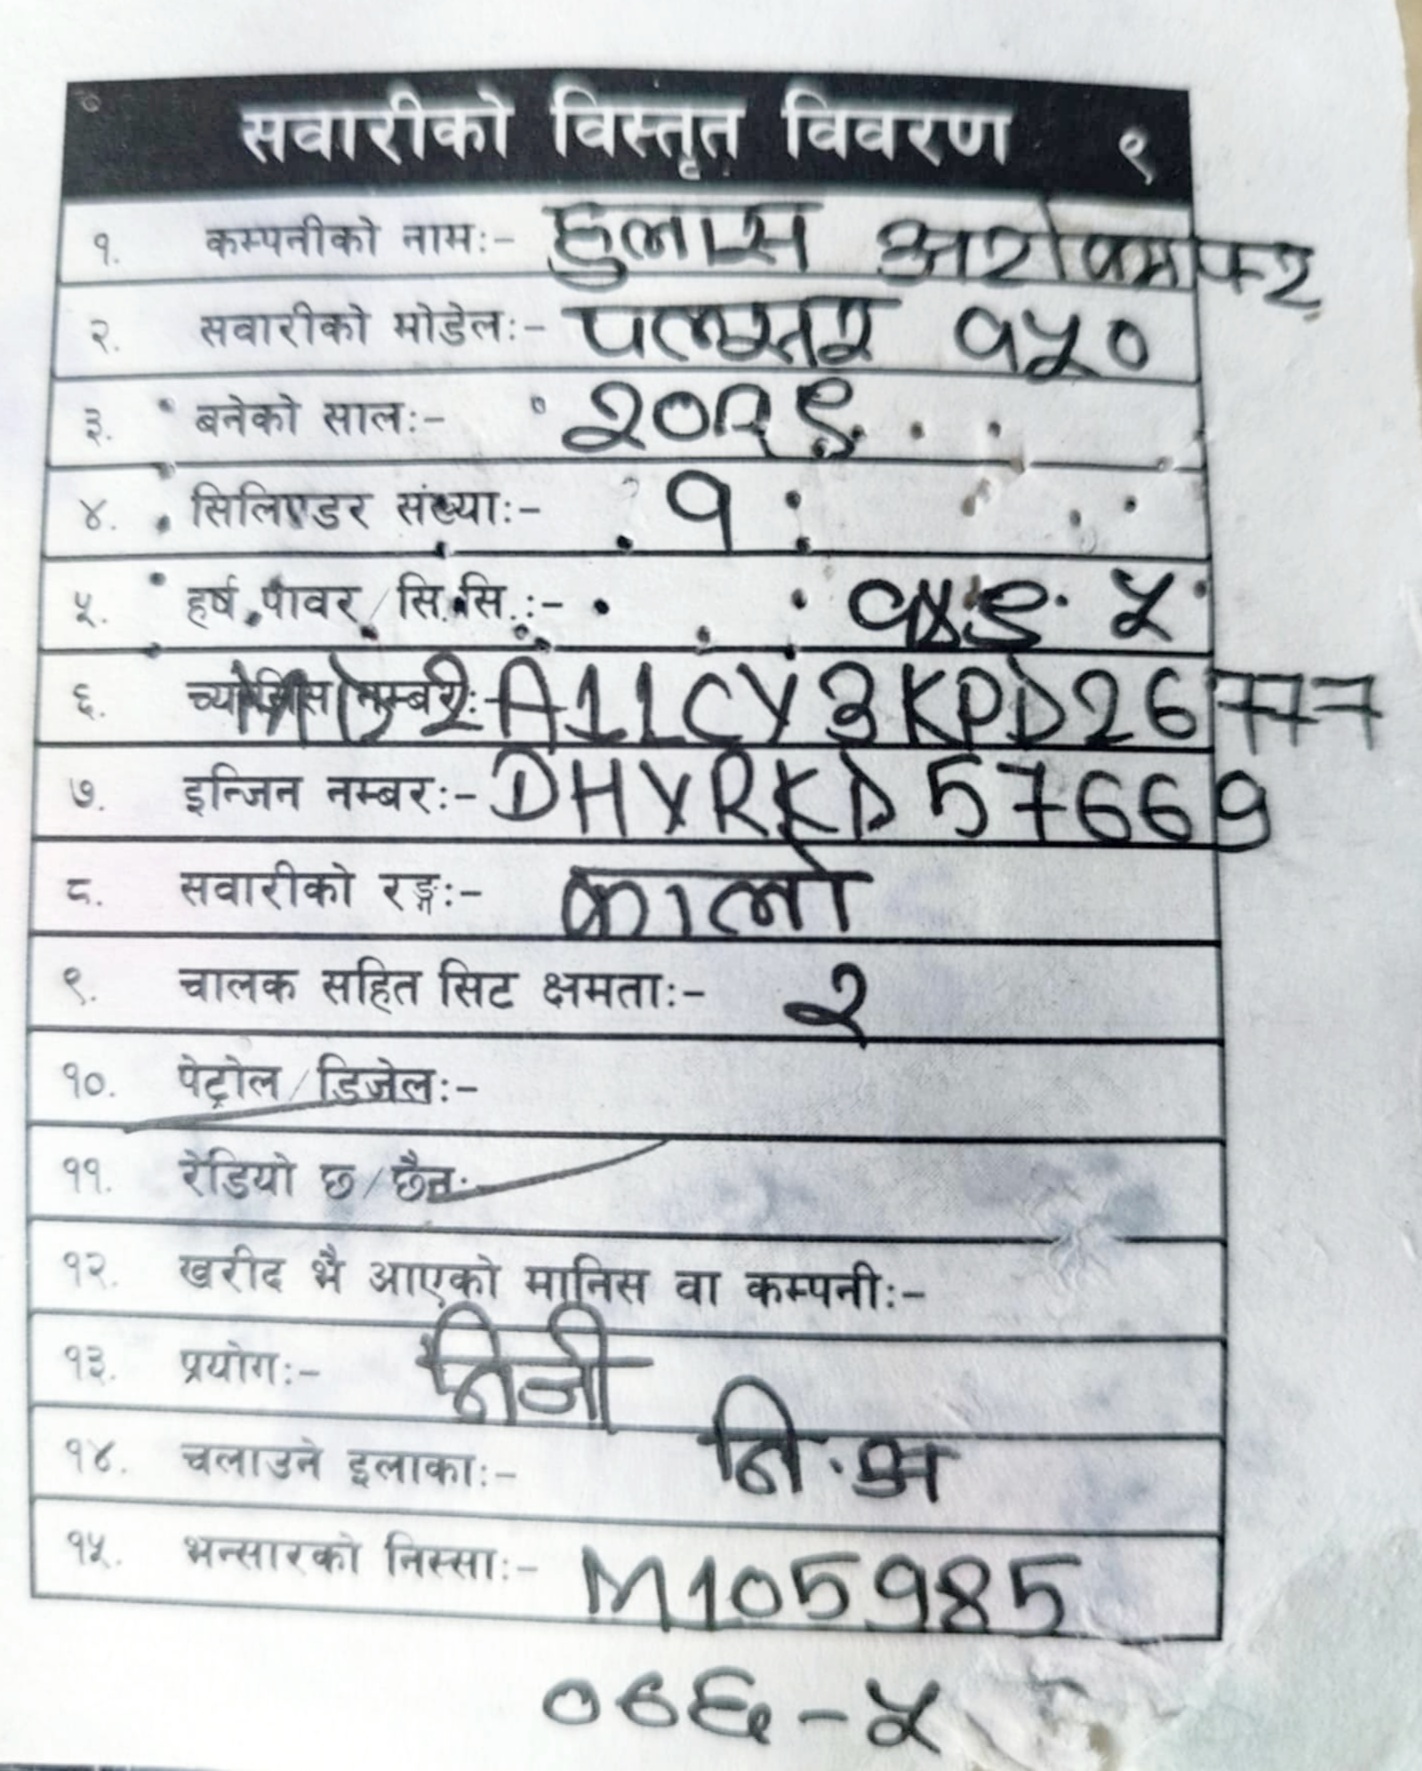 सवारीको विस्तृत विवरण ९
१. कम्पनीको नामः- हुलास
२. सवारीको मोडेलः- पल्सर १५०
३. बनेको सालः- २०१९
४. सिलिण्डर संख्याः- १
५. हर्ष पावर/सि.सि.:- १४९.५
६. च्यासिस नम्बरः- MD2A11CY3KPD26777
७. इन्जिन नम्बरः- DHXRKD57669
८. सवारीको रङ्गः- कालो
९. चालक सहित सिट क्षमताः- २
१०. पेट्रोल/डिजेलः-
११. रेडियो छ/छैनः-
१२. खरीद भै आएको मानिस वा कम्पनीः-
१३. प्रयोगः- निजी
१४. चलाउने इलाकाः- नि.अ
१५. भन्सारको निस्साः- M105985
०७६-५